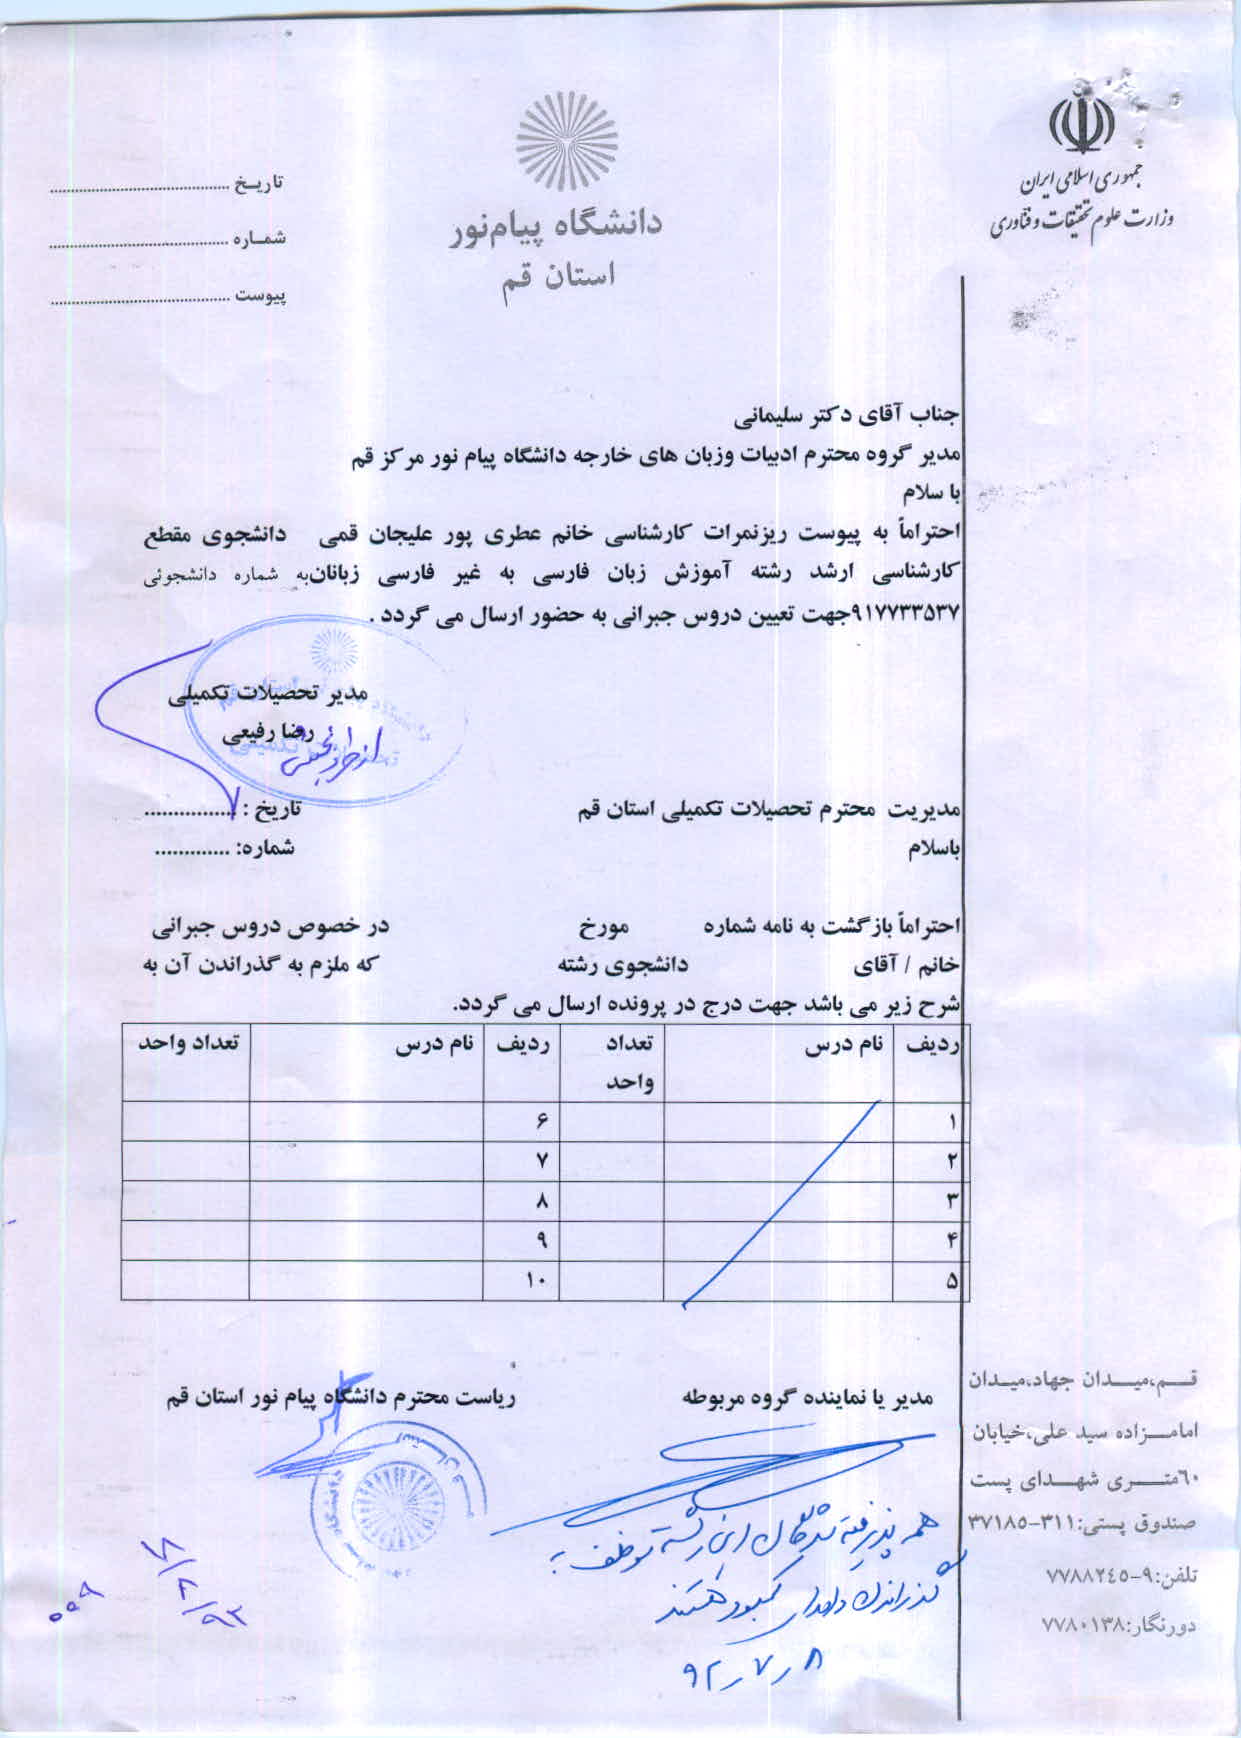 جمهوری اسلامی ایران
وزارت علوم تحقیقات و فنّاوری
دانشگاه پیام‌نور
استان قم
تاریـخ ..........................................
شمـاره ..........................................
پیوست ..........................................
جناب آقای دکتر سلیمانی
مدیر گروه محترم ادبیات وزبان های خارجه دانشگاه پیام نور مرکز قم
با سلام
احتراماً به پیوست ریزنمرات کارشناسی خانم عطری پور علیجان قمی دانشجوی مقطع
کارشناسی ارشد رشته آموزش زبان فارسی به غیر فارسی زبانان‌به شماره دانشجوئی
۹۱۷۷۳۳۵۳۷جهت تعیین دروس جبرانی به حضور ارسال می گردد .
مدیر تحصیلات تکمیلی
رضا رفیعی
مدیریت محترم تحصیلات تکمیلی استان قم
تاریخ : ................
باسلام
شماره: .............
احتراماً بازگشت به نامه شماره مورخ در خصوص دروس جبرانی
خانم / آقای دانشجوی رشته که ملزم به گذراندن آن به
شرح زیر می باشد جهت درج در پرونده ارسال می گردد.
ردیف نام درس تعداد واحد ردیف نام درس تعداد واحد
۱ ۶
۲ ۷
۳ ۸
۴ ۹
۵ ۱۰
مدیر یا نماینده گروه مربوطه
ریاست محترم دانشگاه پیام نور استان قم
همه پذیرفته شدگان این رشته موظف به
گذراندن واحدهای کمبود هستند
۹۲ر۷ر۸
قــم،میــدان جهاد،میـدان
امامــزاده سید علی،خیابان
٦٠متــری شهــدای پست
صندوق پستی:٣١١-٣٧١٨٥
تلفن:٩-٧٧٨٨٢٤٥
دورنگار:٧٧٨٠١٣٨